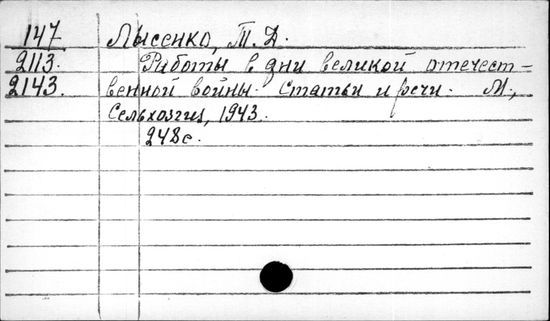 147 Лысенко, Т.Д.
2113. Работы в дни великой отечест-
2143. венной войны. Статьи и речи. М.,
Сельхозгиз, 1943.
248с.